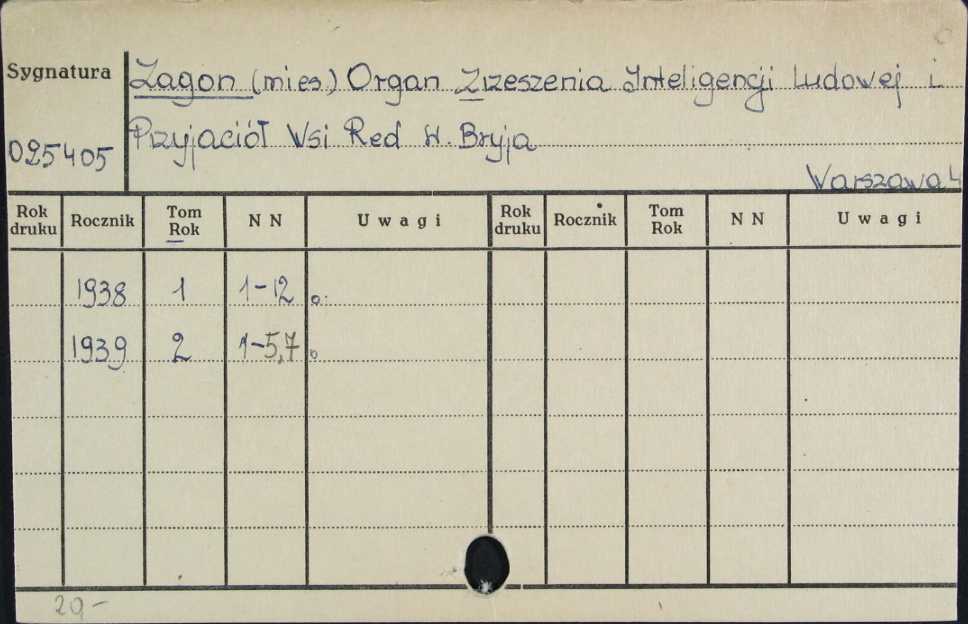 Sygnatura
Zagon (mies.) Organ Zrzeszenia Inteligencji Ludowej i
Przyjaciół Wsi Red W. Bryja
025405
Warszawa 4
Rok druku Rocznik Tom Rok NN Uwagi Rok druku Rocznik Tom Rok NN Uwagi
1938 1 1-12 o.
1939 2 1-5,7 o
29-